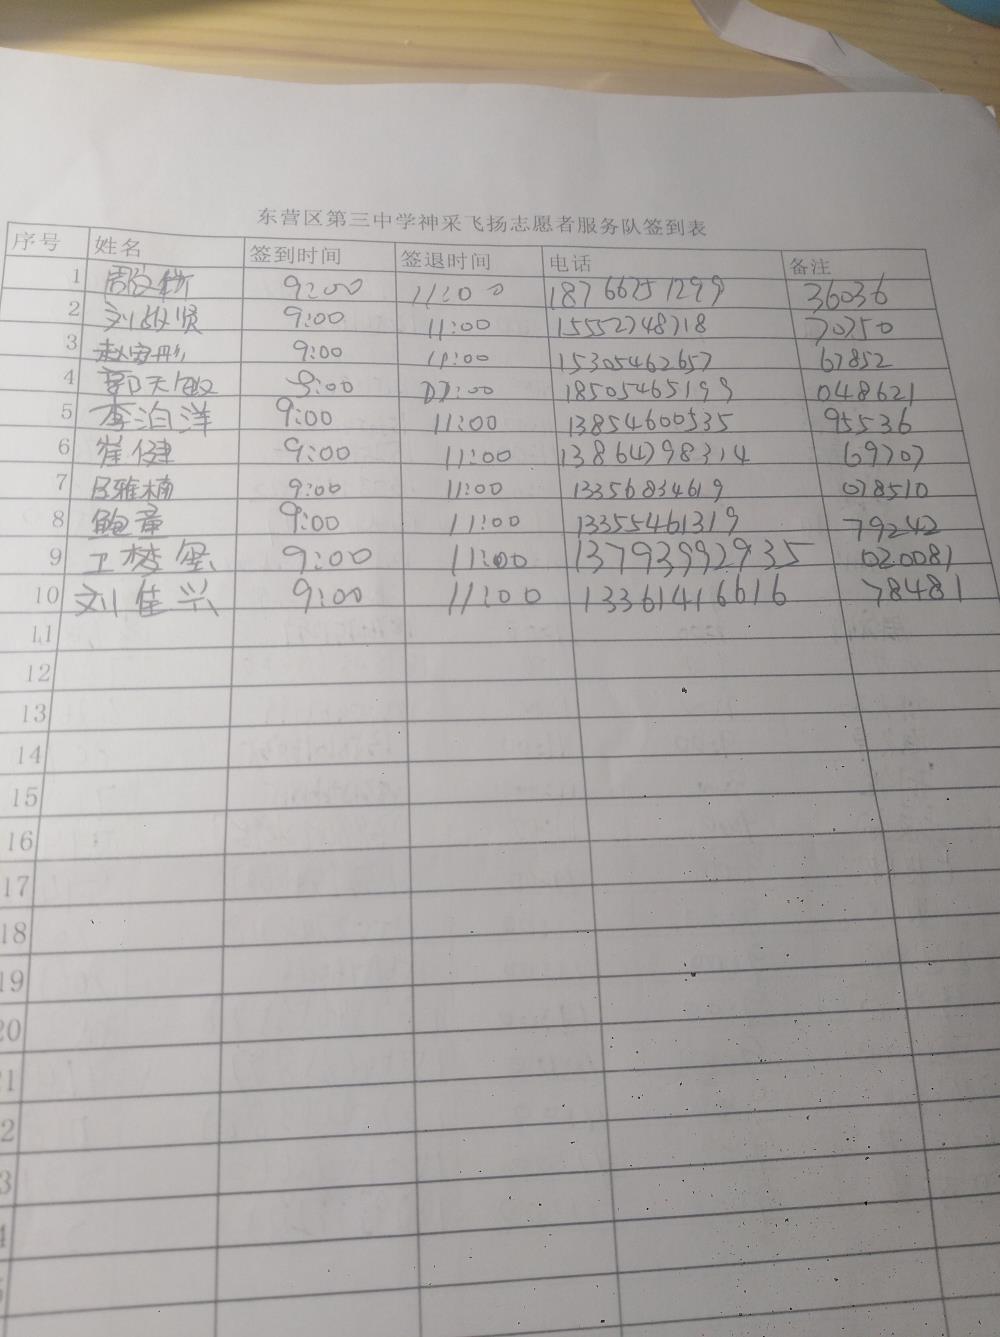 东营区第三中学神采飞扬志愿者服务队签到表
序号 姓名 签到时间 签退时间 电话 备注
1 周文 9:00 11:00 18766751299 36036
2 刘敬贤 9:00 11:00 15552748718 70750
3 赵 彤 9:00 11:00 15305462657 67852
4 郭天 9:00 11:00 18505465199 048621
5 李泊洋 9:00 11:00 13854600535 95536
6 崔健 9:00 11:00 13864798314 69707
7 吕雅楠 9:00 11:00 13356834619 078510
8 鲍童 9:00 11:00 13355461319 79242
9 卫梦 9:00 11:00 13793992935 020081
10 刘佳兴 9:00 11:00 13361416616 78481
11
12
13
14
15
16
17
18
19
20